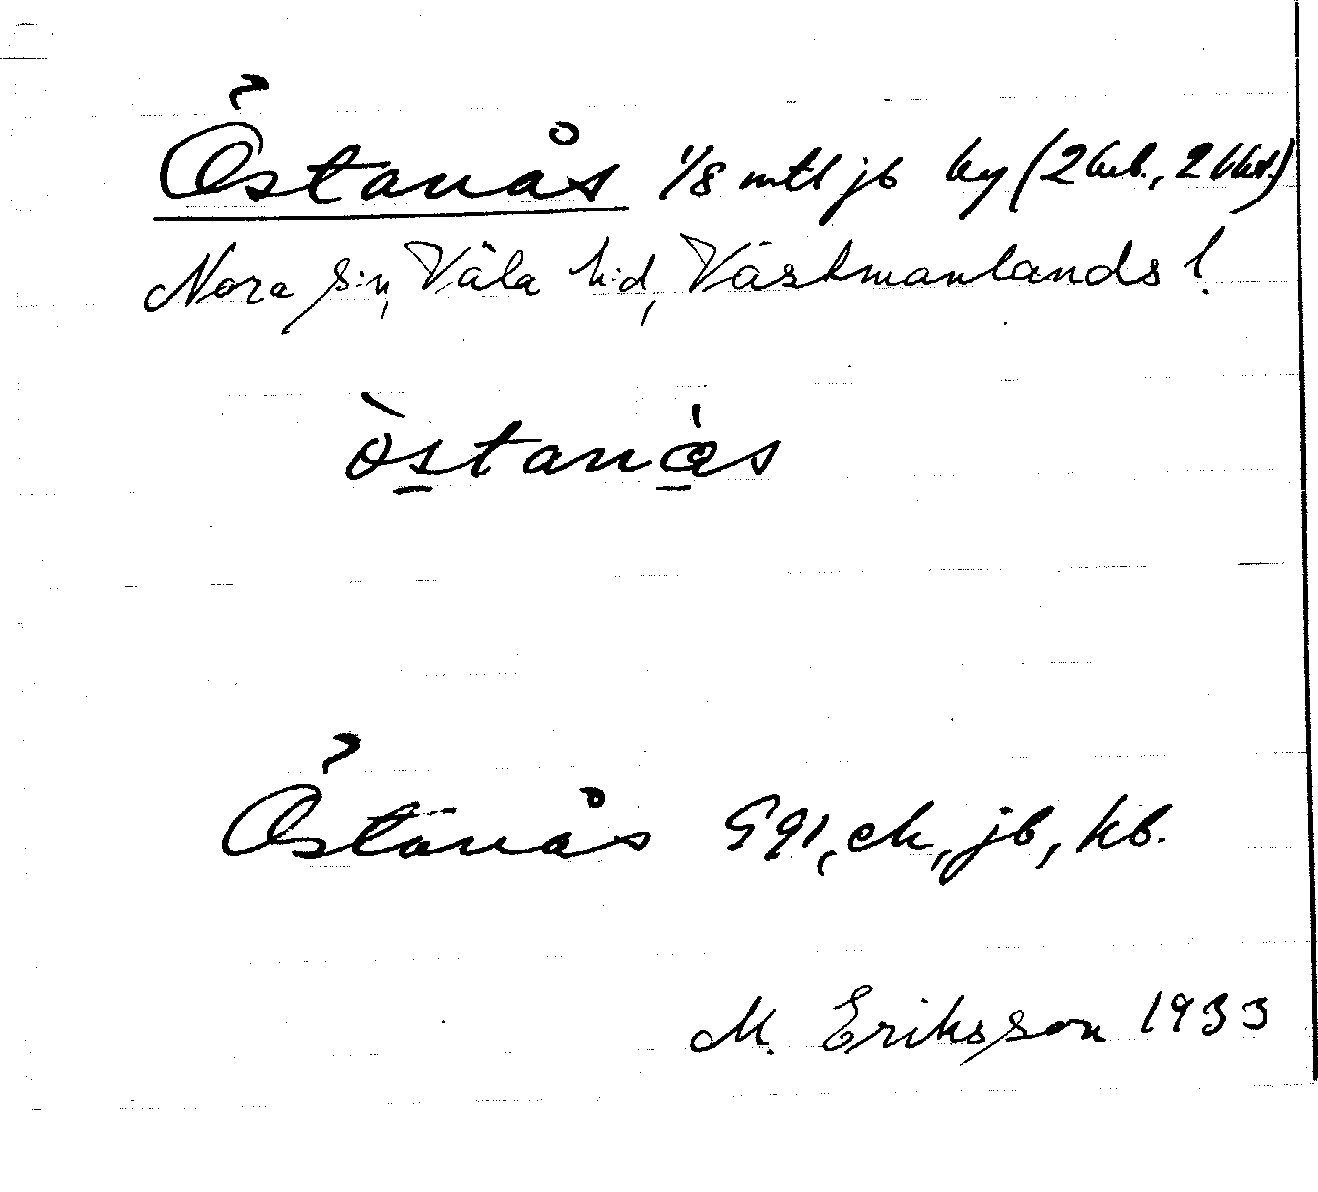 Östanås 1/8 mtl jb by (2 , 2 )
Nora s:n, Våla h:d, Västmanlands l.
òstanås
Östanås G 91, ek, jb, kb.
M. Eriksson 1933